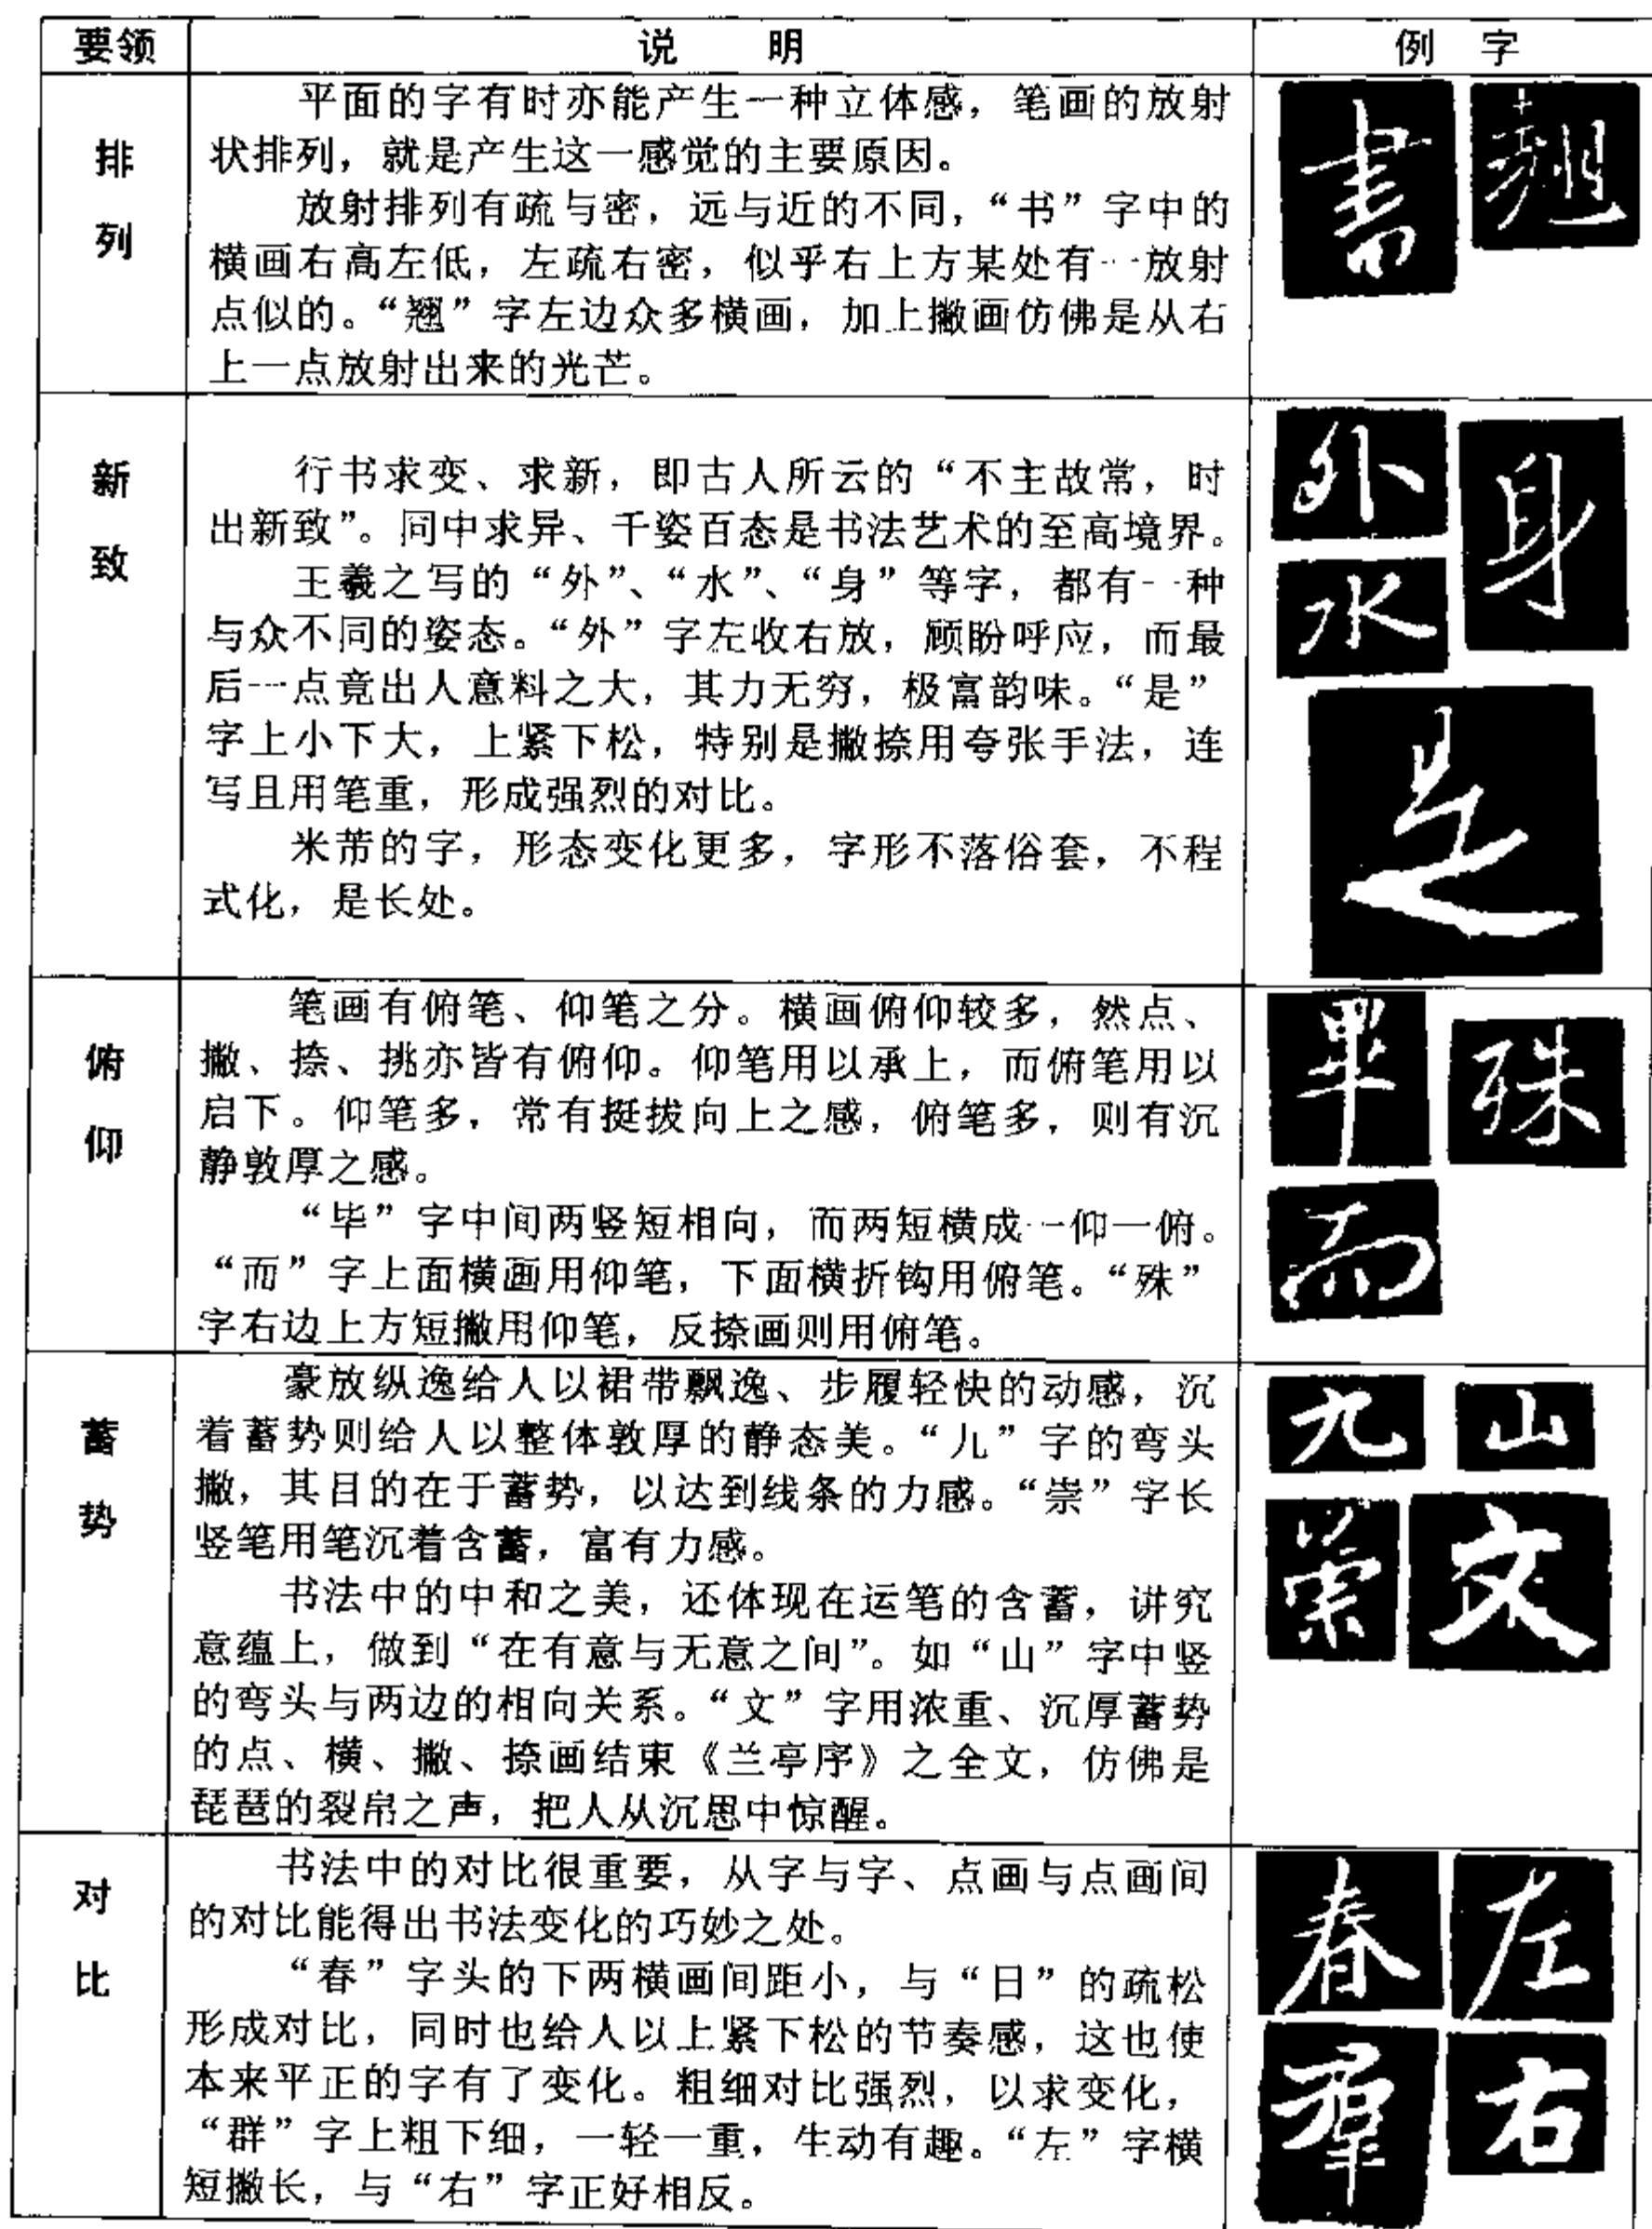 要领 说 明 例 字
排列
平面的字有时亦能产生一种立体感，笔画的放射
状排列，就是产生这一感觉的主要原因。
放射排列有疏与密，远与近的不同，“书”字中的
横画右高左低，左疏右密，似乎右上方某处有一放射
点似的。“翘”字左边众多横画，加上撇画仿佛是从右
上一点放射出来的光芒。
書 翘
新致
行书求变、求新，即古人所云的“不主故常，时
出新致”。同中求异、千姿百态是书法艺术的至高境界。
王羲之写的“外”、“水”、“身”等字，都有一种
与众不同的姿态。“外”字左收右放，顾盼呼应，而最
后一点竟出人意料之大，其力无穷，极富韵味。“是”
字上小下大，上紧下松，特别是撇捺用夸张手法，连
写且用笔重，形成强烈的对比。
米芾的字，形态变化更多，字形不落俗套，不程
式化，是长处。
外 身
水
是
俯仰
笔画有俯笔、仰笔之分。横画俯仰较多，然点、
撇、捺、挑亦皆有俯仰。仰笔用以承上，而俯笔用以
启下。仰笔多，常有挺拔向上之感，俯笔多，则有沉
静敦厚之感。
“毕”字中间两竖短相向，而两短横成一仰一俯。
“而”字上面横画用仰笔，下面横折钩用俯笔。“殊”
字右边上方短撇用仰笔，反捺画则用俯笔。
畢 殊
而
蓄势
豪放纵逸给人以裙带飘逸、步履轻快的动感，沉
着蓄势则给人以整体敦厚的静态美。“九”字的弯头
撇，其目的在于蓄势，以达到线条的力感。“崇”字长
竖笔用笔沉着含蓄，富有力感。
书法中的中和之美，还体现在运笔的含蓄，讲究
意蕴上，做到“在有意与无意之间”。如“山”字中竖
的弯头与两边的相向关系。“文”字用浓重、沉厚蓄势
的点、横、撇、捺画结束《兰亭序》之全文，仿佛是
琵琶的裂帛之声，把人从沉思中惊醒。
九 山
崇 文
对比
书法中的对比很重要，从字与字、点画与点画间
的对比能得出书法变化的巧妙之处。
“春”字头的下两横画间距小，与“日”的疏松
形成对比，同时也给人以上紧下松的节奏感，这也使
本来平正的字有了变化。粗细对比强烈，以求变化，
“群”字上粗下细，一轻一重，生动有趣。“左”字横
短撇长，与“右”字正好相反。
春 左
羣 右